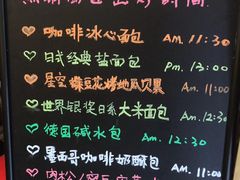 咖啡冰心面包 Am. 11:30
日式经典盐面包 Pm. 13:00
星空蝶豆花烤地瓜贝果 Am. 11:00
世界银奖日系大米面包 Am. 12:30
德国碱水包 Am. 12:30
墨西哥咖啡奶酥包 Am. 11:00